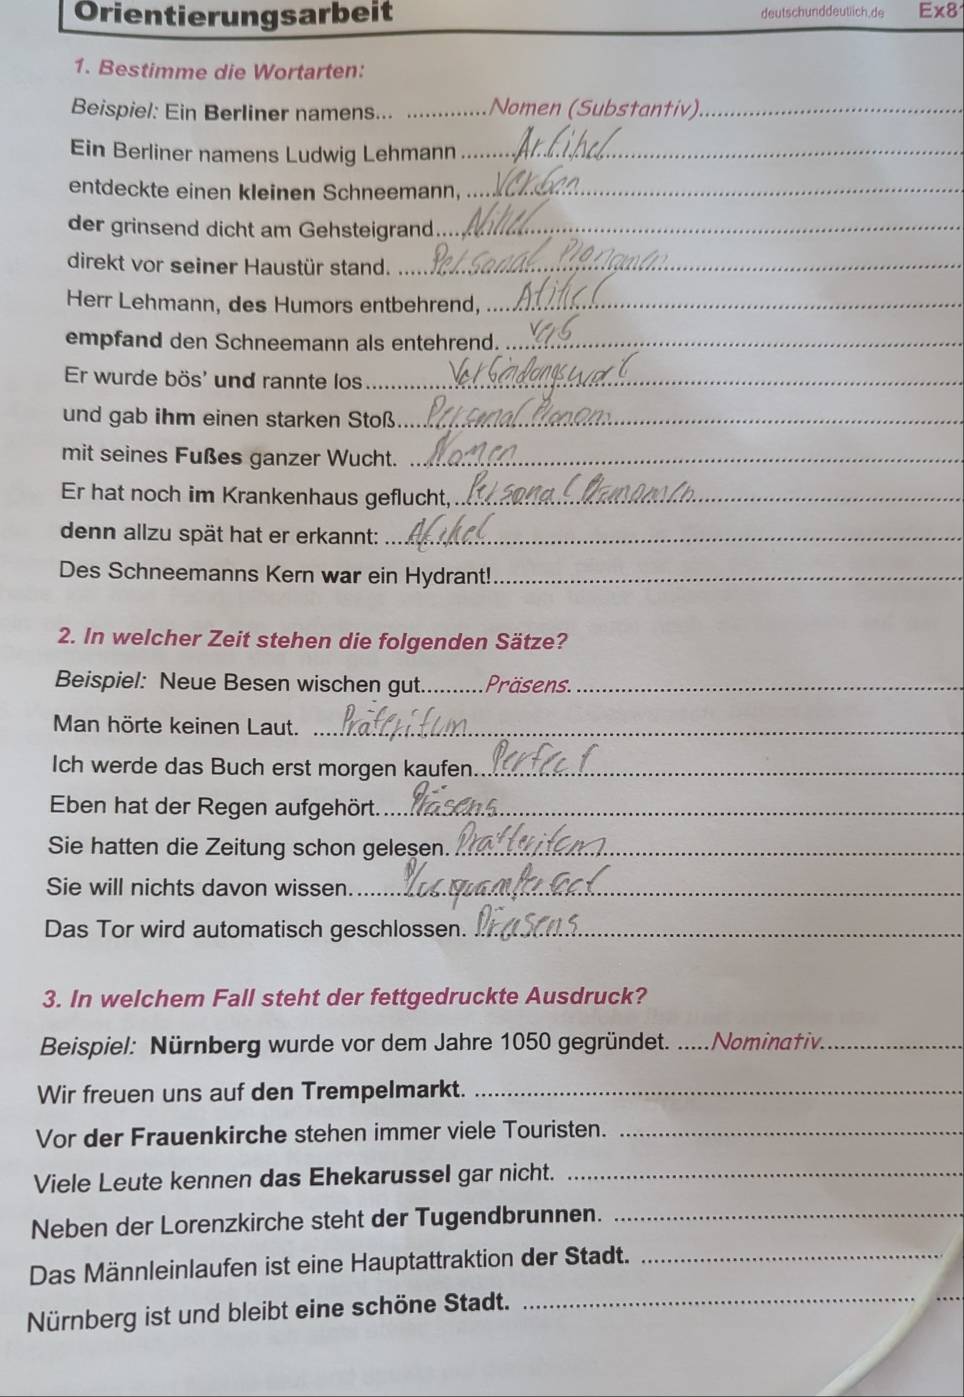 Orientierungsarbeit deutschunddeutlich.de Ex8
1. Bestimme die Wortarten:
Beispiel: Ein Berliner namens... .............Nomen (Substantiv)..........
Ein Berliner namens Ludwig Lehmann .......... Artikel
entdeckte einen kleinen Schneemann, .......... Verben
der grinsend dicht am Gehsteigrand..........
direkt vor seiner Haustür stand. .......... Personal Pronomen
Herr Lehmann, des Humors entbehrend, ..........
empfand den Schneemann als entehrend. ..........
Er wurde bös' und rannte los.......... Verbindongswort
und gab ihm einen starken Stoß.......... Personal Pronom
mit seines Fußes ganzer Wucht. .......... Nomen
Er hat noch im Krankenhaus geflucht, .......... Personal
denn allzu spät hat er erkannt: ..........
Des Schneemanns Kern war ein Hydrant!..........
2. In welcher Zeit stehen die folgenden Sätze?
Beispiel: Neue Besen wischen gut..........Präsens. ..........
Man hörte keinen Laut. .......... Präteritum
Ich werde das Buch erst morgen kaufen.......... Perfect
Eben hat der Regen aufgehört. .......... Präsens
Sie hatten die Zeitung schon gelesen. ..........
Sie will nichts davon wissen. ..........
Das Tor wird automatisch geschlossen. .......... Präsens
3. In welchem Fall steht der fettgedruckte Ausdruck?
Beispiel: Nürnberg wurde vor dem Jahre 1050 gegründet. .....Nominativ..........
Wir freuen uns auf den Trempelmarkt. ..........
Vor der Frauenkirche stehen immer viele Touristen. ..........
Viele Leute kennen das Ehekarussel gar nicht. ..........
Neben der Lorenzkirche steht der Tugendbrunnen. ..........
Das Männleinlaufen ist eine Hauptattraktion der Stadt. ..........
Nürnberg ist und bleibt eine schöne Stadt. ..........